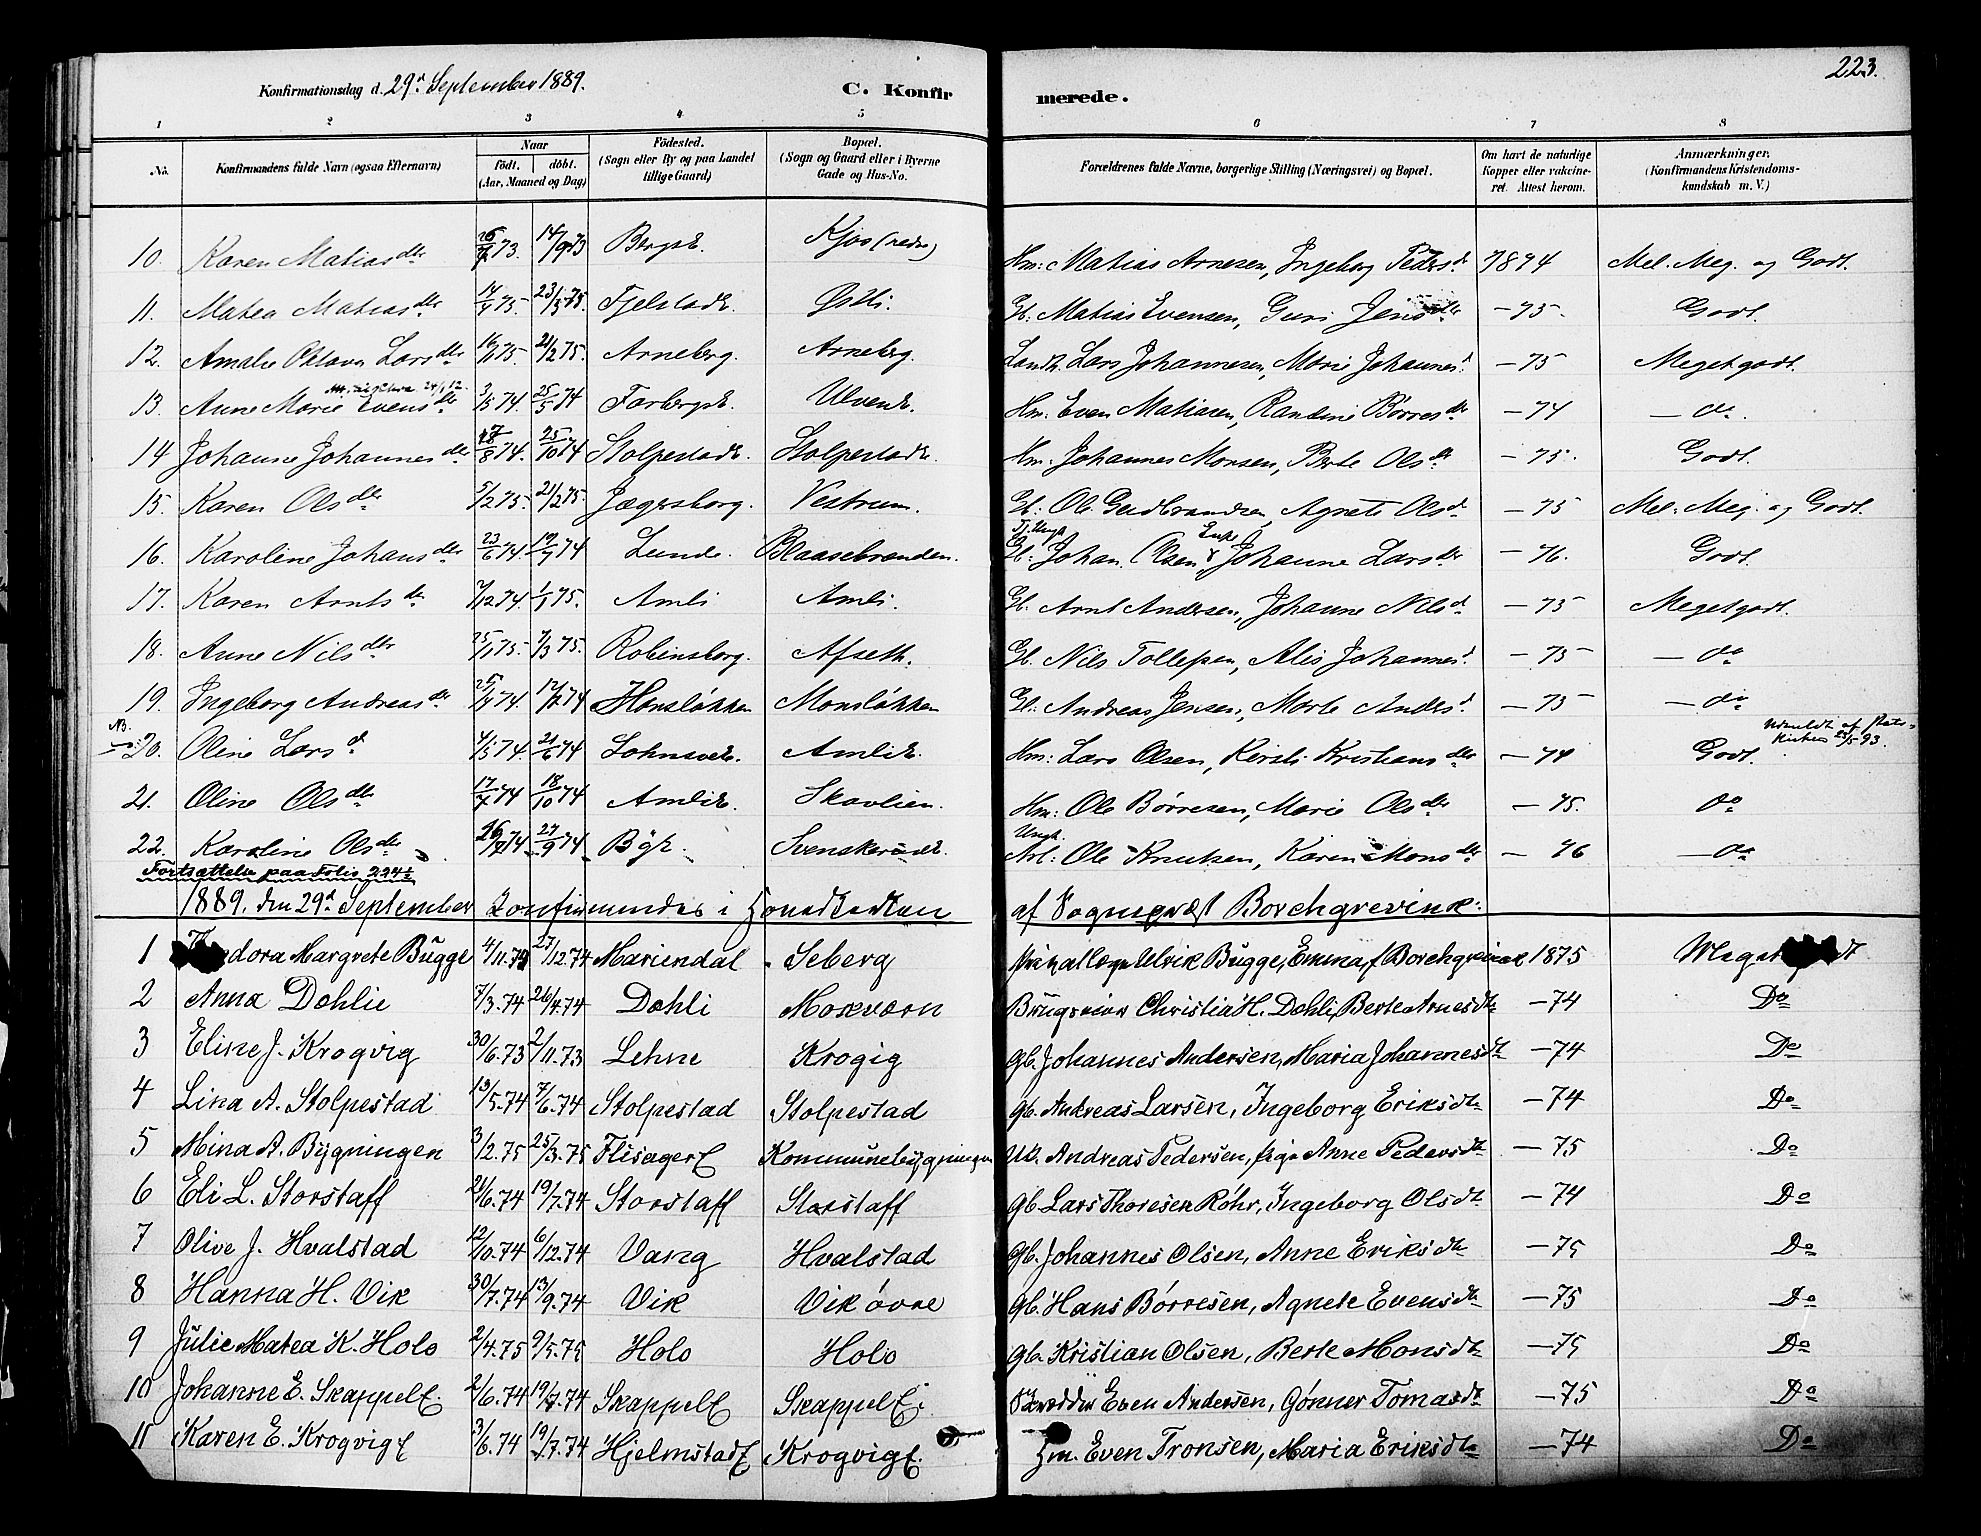 223.
Konfirmationsdag d. 29d September 1889. C. Konfirmerede.
1 2 3 4 5 6 7 8
No. Konfirmandens fulde Navn (ogsaa Efternavn) Naar født. døbt. (Aar, Maaned og Dag) Fødested. (Sogn eller By og paa Landet tillige Gaard) Bopæl. (Sogn og Gaard eller i Byerne Gade og Hus-No. Forældrenes fulde Navne, borgerlige Stilling (Næringsvei) og Bopæl. Om havt de naturlige Kopper eller vakcineret. Attest herom. Anmærkninger. (Konfirmandens Kristendomskundskab m. V.)
10. Karen Matiasdtr 73. 14/9 73 Bergst. Kjos (nedre) Hm: Matias Arnesen, Ingeborg Pedersd. 1874 Mel. Meg. og Godt.
11. Matea Matiasdtr 75. 23/5 75. Fjelstade. Østli. Gb. Matias Evensen, Guri Jensdtr — 75. Godt.
12. Amalie Oktava Larsdtr 75. 21/2 75. Arneberg. Arneberg. Landh. Lars Johannesen, Marie Johannesd. — 75 Meget godt.
13. Anne Marie Evensdtr 3/5 74. 25/5 74 Farbergst. Ulvene. Hm: Even Matiasen, Randine Børresdtr — 74 — do.
14 Johanne Johannesdtr. 74. 25/10 74 Stolpestade. Stolpestade. Hm: Johannes Monsen, Berte Olsdtr — 75. Godt.
15. Karen Olsdtr 5/2 75. 21/2 75. Jægersborg. Vestrum. Gb: Ole Gudbrandsen, Agnete Olsd — 75 Mel. Meg. og Godt.
16. Karoline Johansdtr 23/6 74. 19/7 74 Lunde. Blaasebranden. Gb. Johan Olsen & Enke Johanne Larsdtr — 76. Godt.
17. Karen Arntsdtr 7/12 74. 1/1 75. Amli Amli. Gb. Arnt Andersen, Johanne Nilsd. — 75 Meget godt.
18. Anne Nilsdtr 25/1 75. 7/3 75. Robinsborg. Afseth. Gb. Nils Tollefsen, Alis Johannesd. — 75 — do
19. Ingeborg Andreasdtr 74. 74 Honsløkken Monsløkken Gb. Andreas Jensen, Marte Andersd. — 75 — do
NB. 20. Oline Larsd 4/5 74. 21/6 74 Lohnsvee. Amlie. Hm: Lars Olsen, Kirsti Kristiansdtr — 74 Godt. Udmeldt af Statskirken 25/5 93.
21. Oline Olsdtr 17/7 74 18/10 74 Amlie. Skavlien. Hm: Ole Børresen, Marie Olsdtr — 75. do
22. Karoline Olsdtr 74 27/9 74 Byst. Svenskerude. Ungk. Arb: Ole Knutsen, Karen Monsdtr — 76 — do
Fortsættelse paa Folio 224½
1889. den 29d September Konfirmerides i Hovedkirken af Sognepræst Borchgrevink:
1 Theodora Margrete Bugge 4/11.74 27/12.74 Mariendal Seberg Privatlæge Ulrik Bugge, Emma f Borchgrevink 1875 Meget godt
2 Anna Dæhlie 7/3.74 26/4.74 Dæhli Moskværn Brugseier Christia H. Dæhli, Berte Arnesdtr — 74 Do
3 Eline J. Krogvig 30/6.73 2/11.73 Lehne Krogig gb. Johannes Andersen, Maria Johannesdtr — 74 Do
4 Lina A. Stolpestad 13/5.74 7/6.74 Stolpestad Stolpestad gb. Andreas Larsen, Ingeborg Eriksdtr — 74 Do
5 Mina A. Bygningen 3/2.75 25/3.75 Flisagerf Kommunebygningen Uk. Andreas Pedersen, pige Anne Pedersdtr — 75 Do
6 Eli L. Storstaff 21/6.74 19/7.74 Storstaff Storstaff gb. Lars Thoresen Røhr, Ingeborg Olsdtr — 74 Do
7 Olive J. Hvalstad 12/10.74 6/12.74 Vang Hvalstad gb. Johannes Olsen, Anne Eriksdtr — 75 Do
8 Hanna H. Vik 30/7.74 13/9.74 Vik Vik øvre gb. Hans Børresen, Agnete Evensdtr — 75 Do
9 Julie Matea K. Holo 2/4.75 9/5.75 Holo Holo gb. Kristian Olsen, Berte Monsdtr — 75 Do
10 Johanne E. Skappele. 2/6.74 19/7.74 Skappele Skappele. Skrædder Even Andersen, Gønner Tomasdtr — 75 Do
11 Karen E. Krogvige 3/6.74 19/7.74 Hjelmstade Krogvige. Hm. Even Tronsen, Maria Eriksdtr — 74 Do